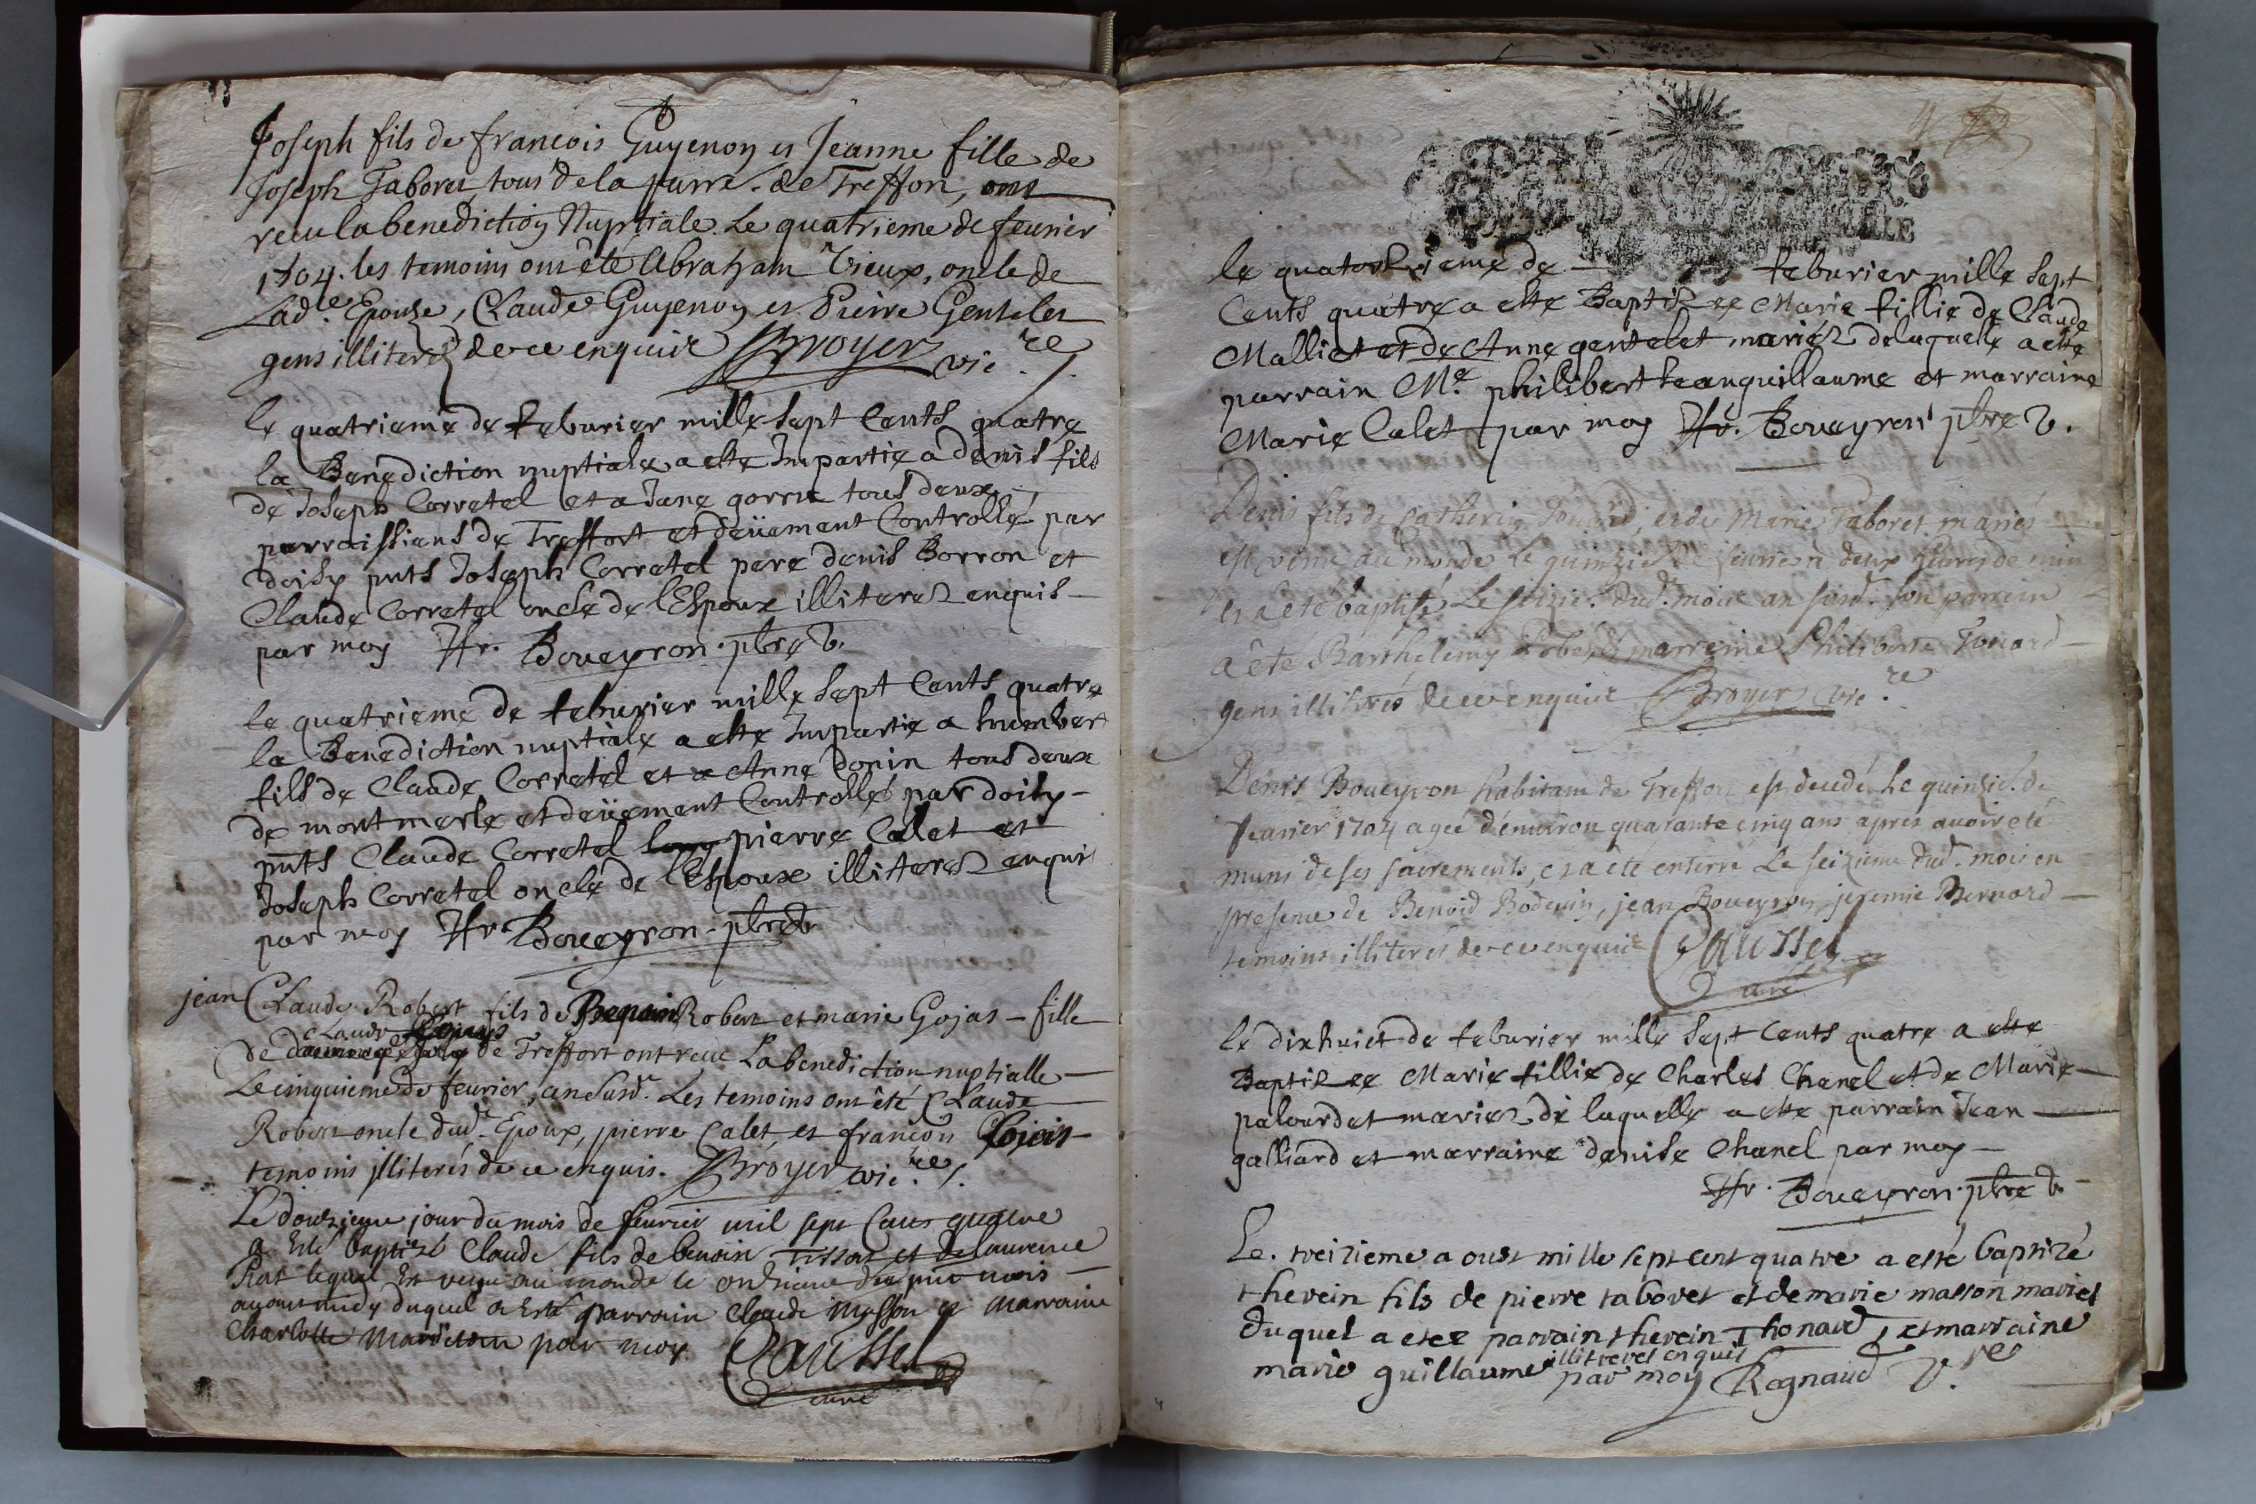 Joseph fils de francois Guyenon et Jeanne fille de
Joseph Taboret tous de la parre. de Treffon, ont
receu la benediction Nuptiale. Le quatrieme de feurier
1704. les temoins ont été Abraham Vieux, oncle de
Lad.e Epouse, Claude Guyenon et Pierre Gentelet
gens illiteres de ce enquis Broyer vic.re
le quatrieme de feburier mille sept Cents quatre
la Benediction nuptiale a este Impartie a denis fils
de Joseph Corretel et a Jane gorru tous deux
parroissiens de Treffort et deüement Controllé par
doisy pnts Joseph Corretel pere denis Borron et
Claude Corretel oncle de l'Espoux illiterez enquis
par moy Fr. Boueyron. pbre v.
le quatrieme de feburier mille sept Cents quatre
la Benediction nuptiale a este Impartie a humbert
fils de Claude Corretel et a Anne donin tous deux
de montmerle et deüement Controllés par doisy
pnts Claude Corretel pierre Calet et
Joseph Corretel oncle de l'Espoux illiterez enquis
par moy Fr. Boueyron. pbre v.
jean Claude Robert fils de Benoit Robert et marie Gojas fille
Claude
de de Treffort ont receu La benediction nuptialle
Le cinquieme de feurier, an susd. Les temoins ont été Claude
Robert oncle dud. Epoux, pierre Calet, et francois
temoins illiterés de ce enquis. Broyer vic.re
Le douzieme jour du mois de feurier mil sept Cens quatre
a Esté baptizé Claude fils de benoin Tissot et de laurence
Prat lequel Est venu au monde le onzieme du pnt mois
auant midy duquel a Esté parrain Claude Masson et Marraine
Charlotte par moy Caussel
curé
le quatorzieme de feburier mille sept
Cents quatre a este Baptizee Marie fillie de Claude
Malliet et de Anne gentelet mariez de laquelle a este
parrain Me. philibert Jeanguillaume et marraine
Marie Calet par moy Fr. Boueyron pbre v.
Denis fils de Catherin Touard, et de Marie Taboret mariés
est venu au monde Le quinzie. de feurier a deux heures de
et a été baptisé Le seizie. dud. mois an susd. son parrein
a été Barthelemy Robert, marreine Philiberte Touard
gens illiterés de ce enquis Broyer vic.re
Denis Boueyron habitant de Treffort est decedé Le quinzie. de
feurier 1704 agee d'enuiron quarante cinq ans apres auoir eté
muni de ses sacrements, et a eté enterré Le seizieme dud. mois en
presence de Benoid Bodeuin, jean Boueyron, jeremie Bernard
temoins illiterés de ce enquis Caussel
Curé
le dixhuict de feburier mille sept Cents quatre a este
Baptizee Marie fillie de Charles Chanel et de Marie
palourdet mariez de laquelle a este parrain Jean
galliard et marraine denise Chanel par moy
Fr. Boueyron. pbre v.
Le. treizieme a oust mille sept cent quatre a esté baptizé
therein fils de pierre taboret et de marie masson mariés
duquel a estee parrain therein Thonard, et marraine
marie guillaume illiteres enquis
par moy Regnaud V.re